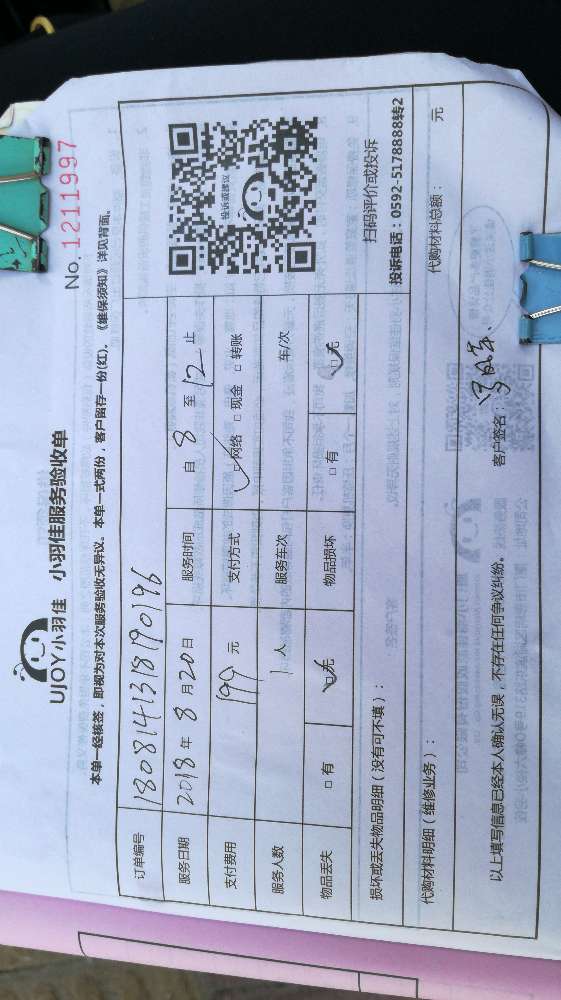 No.1211997
UJOY小羽佳 小羽佳服务验收单
本单一经核签，即视为对本次服务验收无异议。本单一式两份，客户留存一份(红)。《维保须知》详见背面。
订单编号 180814131819 0196
服务日期 2018年8月20日 服务时间 自 8 至 12 止
支付费用 199元 支付方式 网络 □现金 □转账
服务人数 1人 服务车次 车/次
物品丢失 □有 □无 物品损坏 □有 □无
投诉或建议
扫码评价或投诉
投诉电话：0592-5178888转2
损坏或丢失物品明细（没有可不填）：
代购材料明细（维修业务）： 代购材料总额： 元
以上填写信息已经本人确认无误，不存在任何争议纠纷。 客户签名：